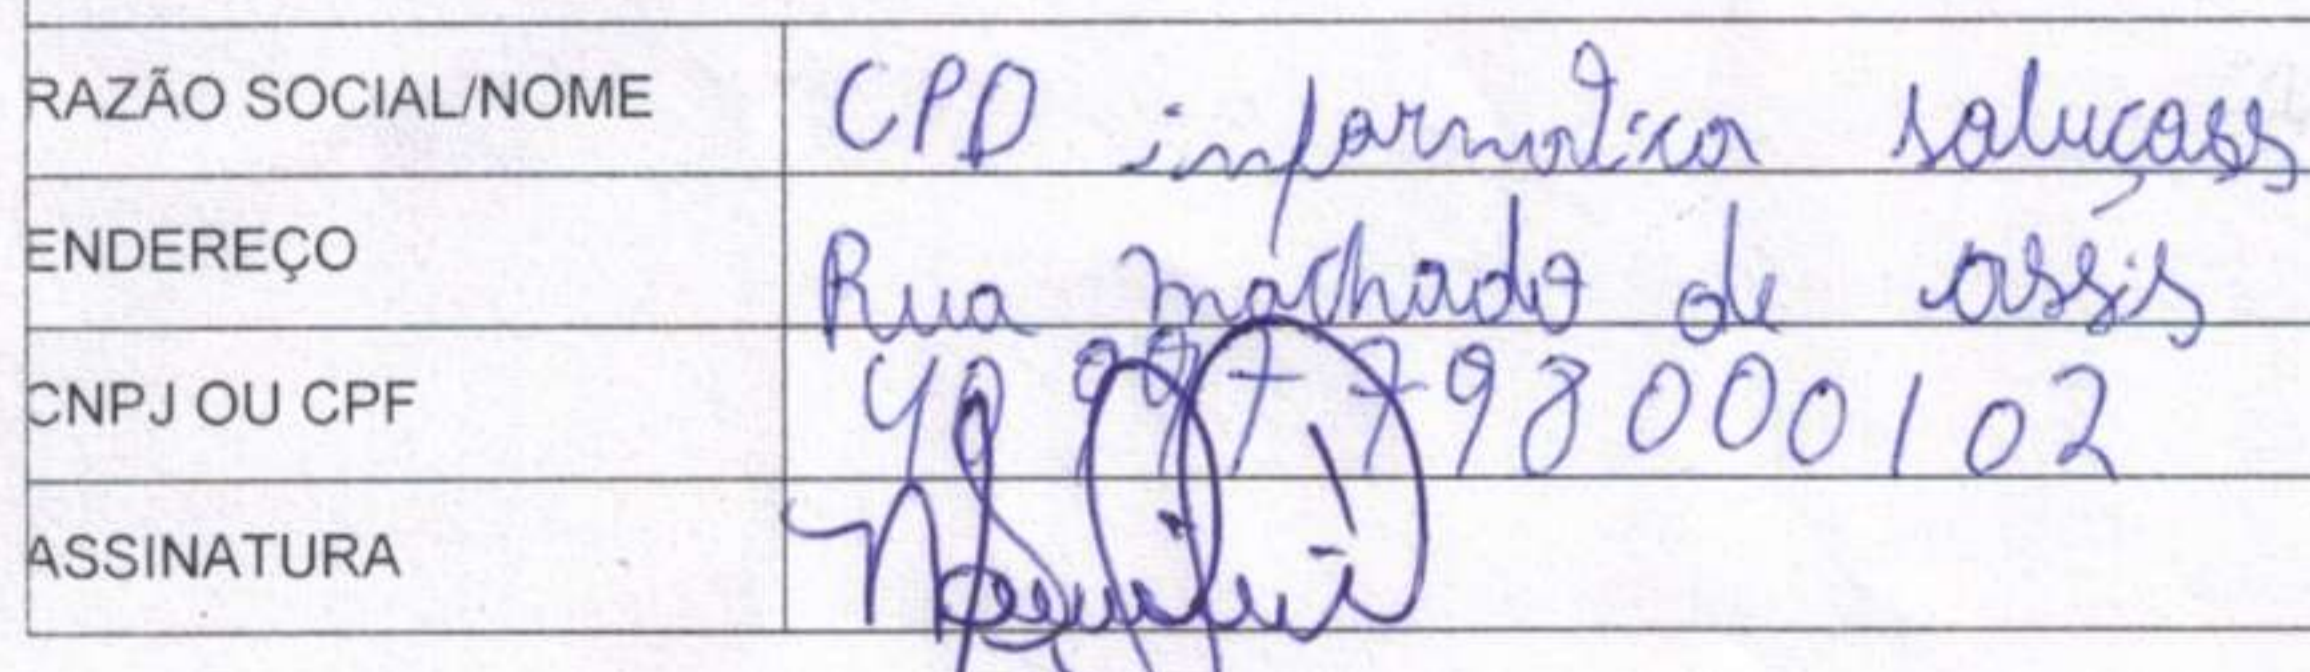 RAZÃO SOCIAL/NOME CPD informatica saluçoes
ENDEREÇO Rua machado de assis
CNPJ OU CPF
ASSINATURA